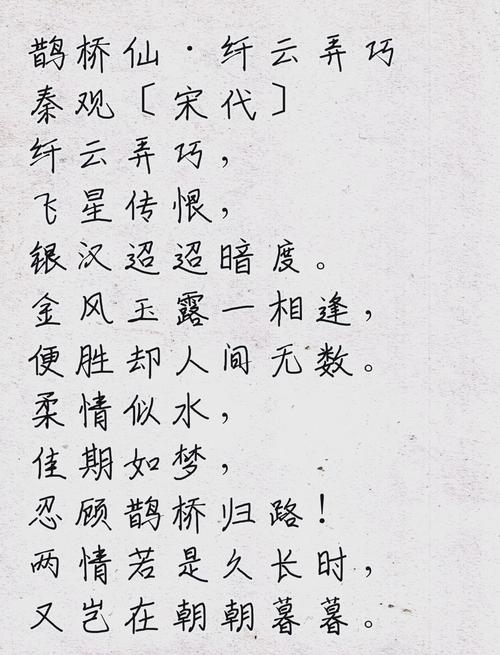 鹊桥仙·纤云弄巧
秦观〔宋代〕
纤云弄巧，
飞星传恨，
银汉迢迢暗度。
金风玉露一相逢，
便胜却人间无数。
柔情似水，
佳期如梦，
忍顾鹊桥归路！
两情若是久长时，
又岂在朝朝暮暮。